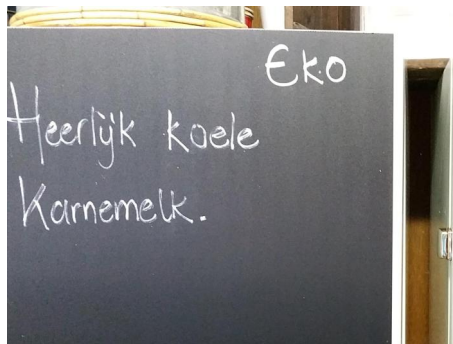 Eko
Heerlijk koele
Karnemelk.